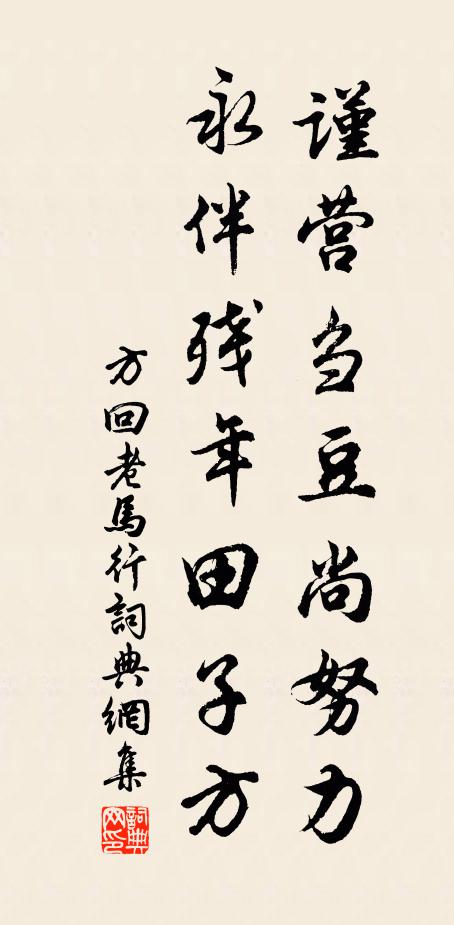 謹营刍豆尚努力
永伴残年田子方
方回老馬行詞典網集
詞典網印